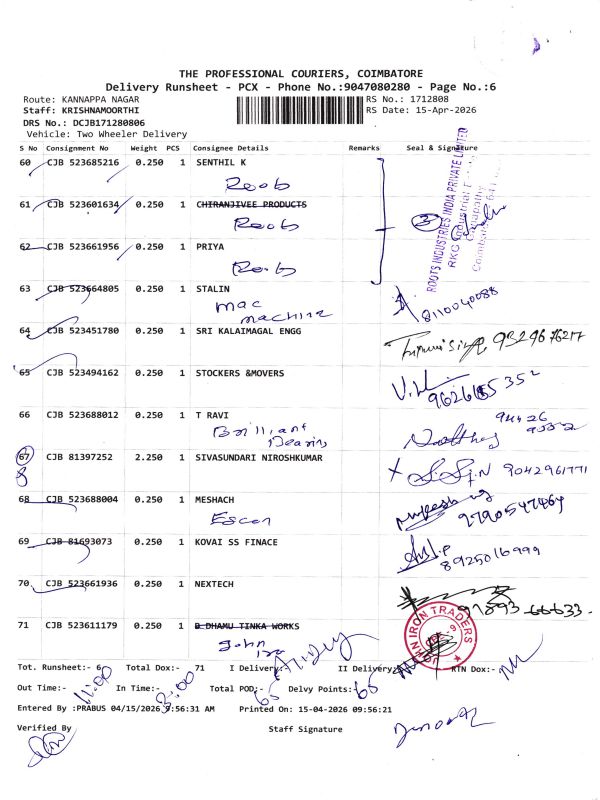 THE PROFESSIONAL COURIERS, COIMBATORE
Delivery Runsheet - PCX - Phone No.:9047080280 - Page No.:6
Route: KANNAPPA NAGAR RS No.: 1712808
Staff: KRISHNAMOORTHI RS Date: 15-Apr-2026
DRS No.: DCJB171280806
Vehicle: Two Wheeler Delivery
S No Consignment No Weight PCS Consignee Details Remarks Seal & Signature
60 CJB 523685216 0.250 1 SENTHIL K
Roob
61 CJB 523601634 0.250 1 CHIRANJIVEE PRODUCTS
Roob
3
ROOTS INDUSTRIES INDIA PRIVATE LIMITED
62 CJB 523661956 0.250 1 PRIYA
Roob
63 CJB 523664805 0.250 1 STALIN
mac machine
8110040088
64 CJB 523451780 0.250 1 SRI KALAIMAGAL ENGG
65 CJB 523494162 0.250 1 STOCKERS &MOVERS
66 CJB 523688012 0.250 1 T RAVI
Brilliant
67 CJB 81397252 2.250 1 SIVASUNDARI NIROSHKUMAR
9042961771
68 CJB 523688004 0.250 1 MESHACH
Escon
9790547464
69 CJB 81693073 0.250 1 KOVAI SS FINACE
8925016999
70 CJB 523661936 0.250 1 NEXTECH
71 CJB 523611179 0.250 1 D DHAMU TINKA WORKS
John
IRON TRADERS
Tot. Runsheet:- 6 Total Dox:- 71 I Delivery: II Delivery: RTN Dox:-
Out Time:- 11:00 In Time:- 3:00 Total POD:- 65 Delvy Points: 65
Entered By :PRABUS 04/15/2026 9:56:31 AM Printed On: 15-04-2026 09:56:21
Verified By Staff Signature